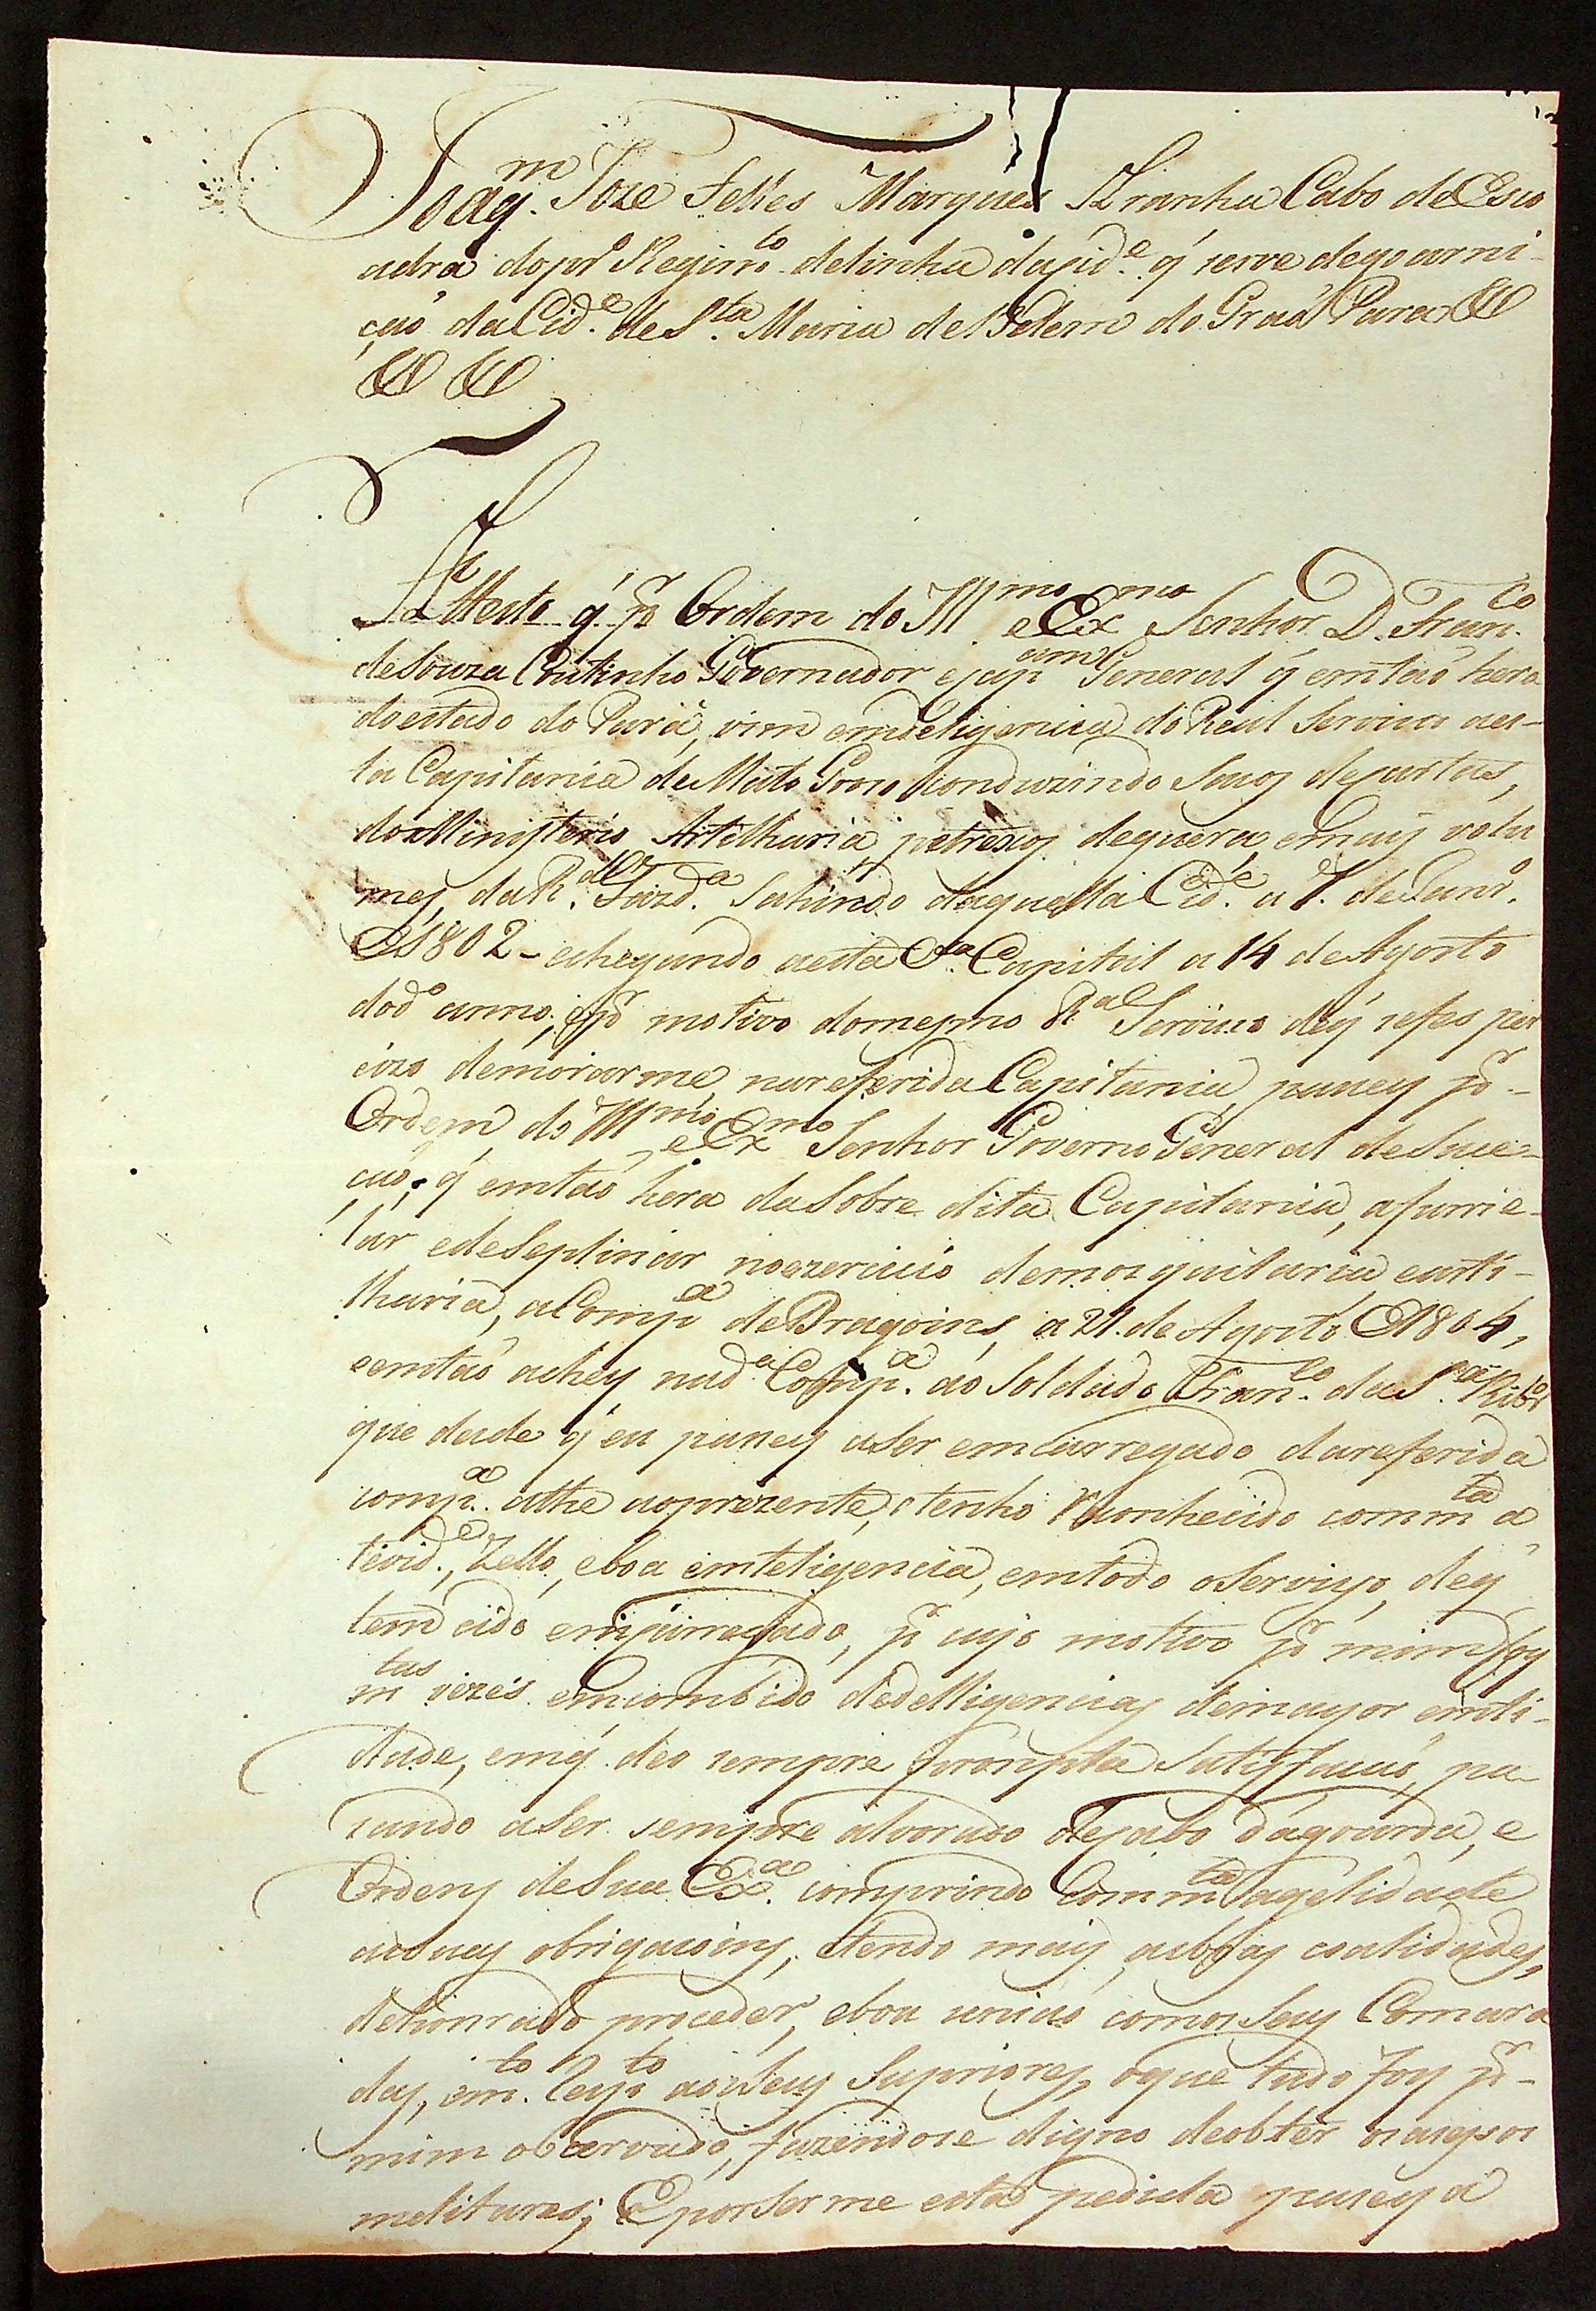 Joaq.m Joze Telles Marques Aranha Cabo de Esco
adra do pr.o Regim.to de linha da Cid.e q̃ serve de goarni-
çaõ da Cid.e de S.ta Maria de Belem do Graõ Pará &
& &
Attesto q̃ p.r Ordem do Ill.mo e Ex.mo Senhor D. Fran.co
de Souza Coutinho Governador e Cap.am General q̃ emtaõ hera
do estado do Pará, vim em deligencia do Real Servico aes-
ta Capitania de Mato Groso conduzindo Sacos de cartas,
do Ministerio Artelharia, petrexos de guera, e mais volu
mes, da R.al Fazd.a Sahindo daquella Cid.e a 7. de Janr.o
de 1802 - e chegando a esta Capital a 14 de Agosto
do d.o anno; e p.r motivo do mesmo R.al Servico de q̃ se fes per
cizo demorarme, na referida Capitania, pasey p.r -
Ordem, do Ill.mo e Ex.mo Senhor Governo General de Suce-
çaõ, q̃ emtaõ hera da Sobre dita Capitania, a furrie-
lar e deseplinar no ezercicio de mosquitaria e arti-
lharia, a Comp.a de Dragoins, a 21. de Agosto de 1804,
e emtaõ achey na d.a Comp.a ao Soldado Fran.co da S.a Ribr.o
que desde q̃ eu pasey a Ser emcarregado da referida
comp.a athe ao prezente, o tenho reconhecido com m.ta a
tivid.e, Zello, e boa emteligencia, em todo o Serviço, de q̃
tem cido emcarregado, p.r cujo motivo p.r mim foy
m.tas vezes emcombido de delligencias de mayor emti-
dade, em q̃ deo sempre prompta Satisfacaõ, pa-
sando a Ser sempre alvorado de Cabo da goarda, e
Ordens de Sua Ex.a comprindo Com m.ta agelidade
as suas obrigacoins, e tendo mais as boas coalidades,
de honrado proceder, e boa uniaõ com os Seus Comara
das, e m.to resp.to aos Seus Supriores, o que tudo foy p.r -
mim obcervado, fazendose digno de obter os acesos
melitares; E por Ser me esta pedida pasey a